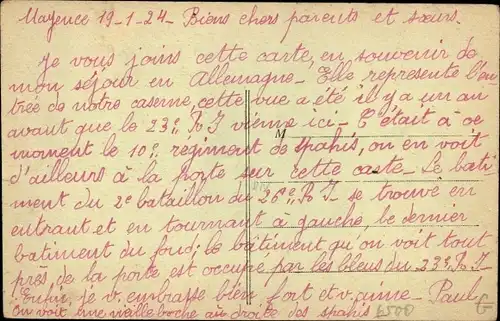 Mayence 19-1-24 - Biens chers parents et sœurs.
Je vous joins cette carte, en souvenir de
mon séjour en Allemagne - Elle represente l'en
trée de notre caserne, cette vue a été il y a un an
avant que le 23e R I vienne ici - C'était à ce
moment le 10e regiment de spahis, on en voit
d'ailleurs à la porte sur cette carte - Le bati
ment du 2e bataillon du 26e R I se trouve en
entrant et en tournant à gauche, le dernier
batiment du fond; le bâtiment qu'on voit tout
près de la porte est occupé par les bleus du 23e R I -
Enfin, je v. embrasse bien fort et v. aime - Paul
On voit une vieille boche au droite des spahis
6500 G